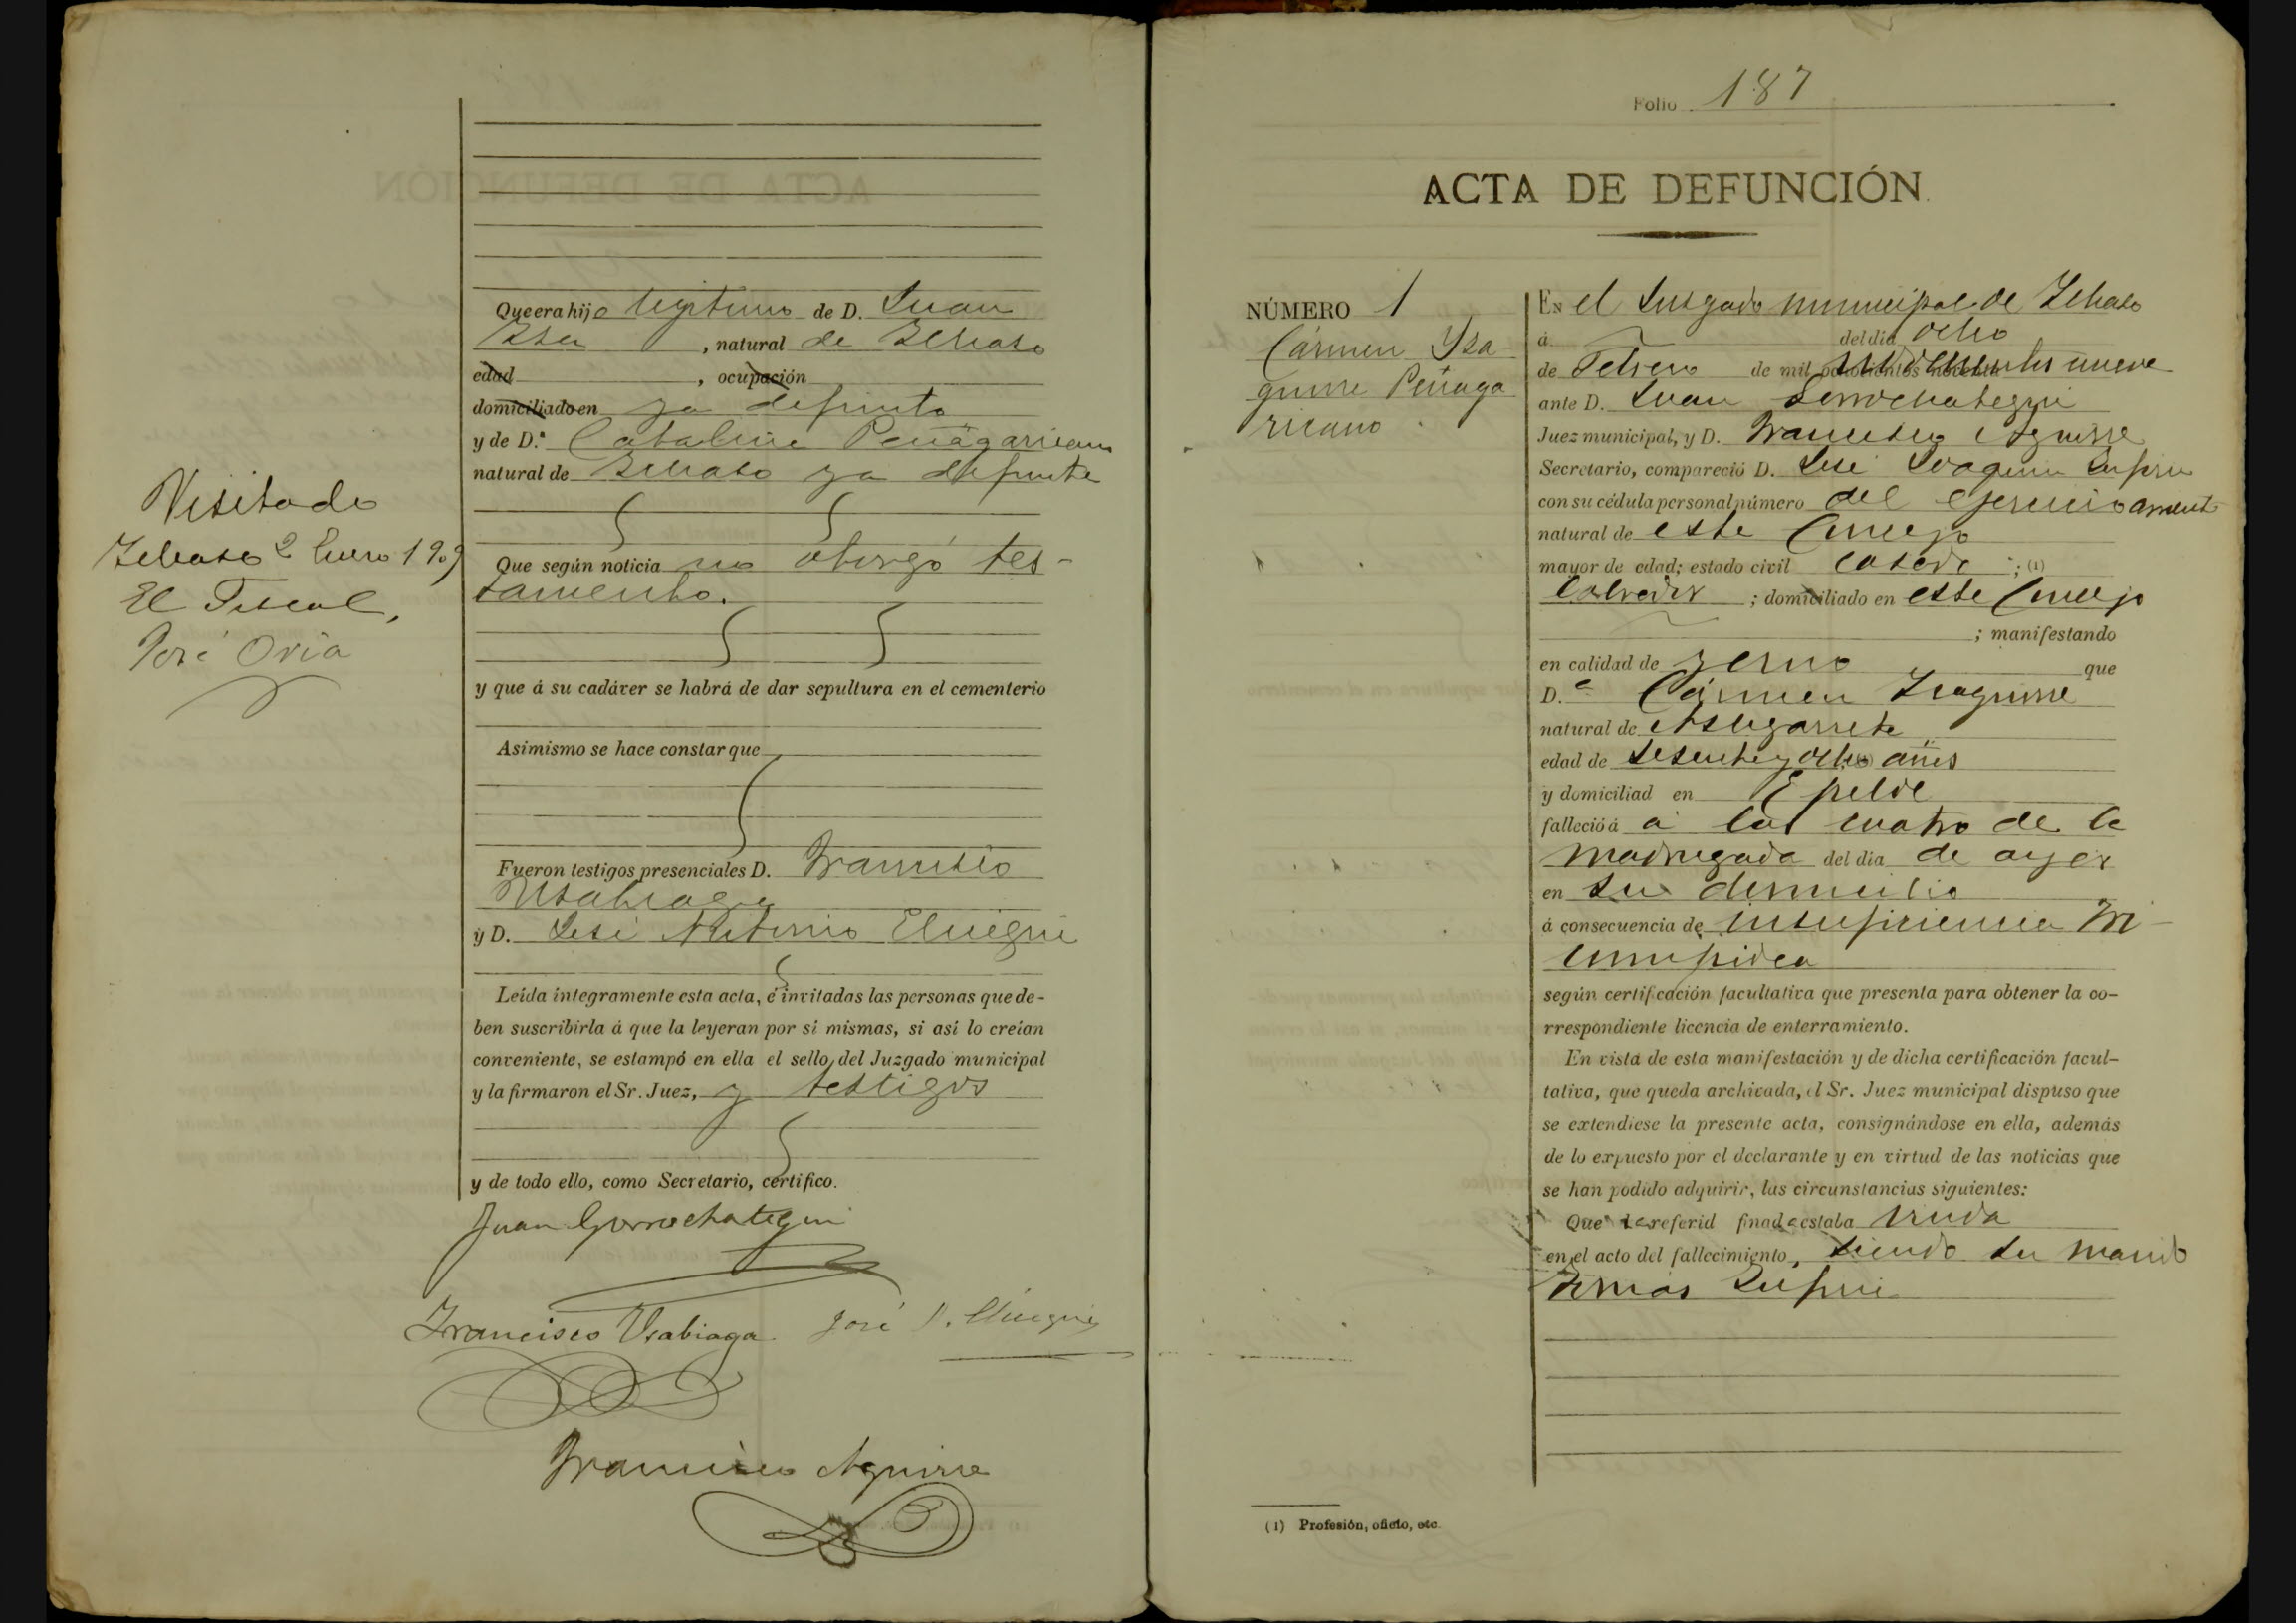 Que era hijo legitimo de D. Juan
, natural de
edad , ocupación
domiciliado en ya defunto
y de D.ª Catalina Peñagaricano
natural de ya defunta
Visitado
2 Enero 1909
El Fiscal,
José Oria
Que según noticia no otorgó tes-
tamento.
y que á su cadáver se habrá de dar sepultura en el cementerio
Asimismo se hace constar que
Fueron testigos presenciales D. Francisco
Usabiaga
y D. José Antonio
Leída íntegramente esta acta, é invitadas las personas que de-
ben suscribirla á que la leyeran por sí mismas, si así lo creían
conveniente, se estampó en ella el sello del Juzgado municipal
y la firmaron el Sr. Juez, y testigos
y de todo ello, como Secretario, certifico.
Juan Gorrochategui
Francisco Usabiaga José A.
Francisco Aguirre
Folio 187
ACTA DE DEFUNCIÓN.
NÚMERO 1
Cármen Yza
guirre Peñaga
ricano
En el Juzgado municipal de
á del dia ocho
de Febrero de mil ochocientos novecientos nueve
ante D. Juan Gorrochategui
Juez municipal, y D. Francisco Aguirre
Secretario, compareció D. José Joaquin
con su cédula personal número del ejercicio
natural de este Concejo
mayor de edad; estado civil casado ; (1)
Labrador ; domiciliado en este Concejo
; manifestando
en calidad de yerno que
D.ª Cármen Izaguirre
natural de Astigarreta
edad de sesenta y ocho años
y domiciliad en Epelde
falleció á á las cuatro de la
madrugada del dia de ayer
en su domicilio
á consecuencia de insuficiencia
según certificación facultativa que presenta para obtener la co-
rrespondiente licencia de enterramiento.
En vista de esta manifestación y de dicha certificación facul-
tativa, que queda archivada, el Sr. Juez municipal dispuso que
se extendiese la presente acta, consignándose en ella, además
de lo expuesto por el declarante y en virtud de las noticias que
se han podido adquirir, las circunstancias siguientes:
Que la referid finada estaba viuda
en el acto del fallecimiento, siendo su marido
Tomás
(1) Profesión, oficio, etc.